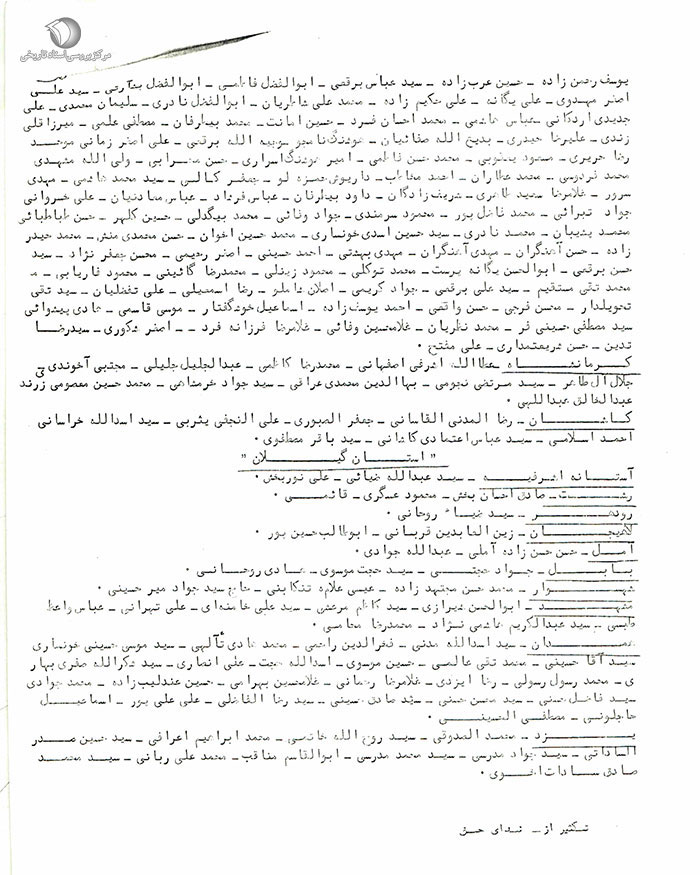 مرکز بررسی اسناد تاریخی
یوسف رحمن زاده ـ حسین عرب زاده ـ سید عباس برقعی ـ ابوالفضل فاطمی ـ ابوالفضل بشارتی ـ سید علی
اصغر مهدوی ـ علی یگانه ـ علی حکیم زاده ـ محمد علی شاطریان ـ ابوالفضل نادری ـ سلیمان محمدی ـ علی
جدیدی اردکانی ـ عباس هاشمی ـ محمد احسان فرد ـ حسین امانت ـ محمد بیطرفان ـ مصطفی علمی ـ میرزا قلی
زندی ـ علیرضا حیدری ـ بدیع الله صفائیان ـ هوشنگ وجیه الله برقعی ـ علی اصغر زمانی موحد
رضا حریری ـ مسعود یعقوبی ـ محمد حسن فاطمی ـ امیر هوشنگ اسراری ـ حسن صحرایی ـ ولی الله مشهدی
محمد فردوسی ـ محمد عطاران ـ احمد مخاطب ـ داریوش حمزه لو ـ جعفر کمالی ـ سید محمد هاشمی ـ مهدی
سرور ـ غلامرضا سعید طاهری ـ شریف زادگان ـ داود بیطرفان ـ عباس فرشاد ـ عباس صادقیان ـ علی خسروانی
جواد تبرائی ـ محمد فاضل پور ـ محمود سرمندی ـ جواد وفائی ـ محمد بیگدلی ـ حسین کلهر ـ حسن طباطبائی
محمد پشیبان ـ محمد نادری ـ سید حسین اسدی خونساری ـ محمد حسین اخوان ـ حسن محمدی منش ـ محمد حیدر
زاده ـ حسن آهنگران ـ مهدی آهنگران ـ مهدی بهشتی ـ احمد حسینی ـ اصغر رحیمی ـ محسن جعفر نژاد ـ سید
حسن برقعی ـ ابوالحسن یگانه پرست ـ محمد توکلی ـ محمود زینلی ـ محمدرضا گائینی ـ محمود فاریابی ـ م
محمد تقی مستقیم ـ سید علی برقعی ـ جواد کریمی ـ اصلان شاملو ـ رضا اسمعیلی ـ علی تفضلیان ـ سید تقی
تحویلدار ـ محسن فرجی ـ حسن واقعی ـ احمد یوسف زاده ـ اسماعیل خوشگفتار ـ موسی قاسمی ـ هادی پیشوائی
سید مصطفی حسینی فر ـ محمد نظریان ـ غلامحسین وفائی ـ غلامرضا فرزانه فرد ـ اصغر شکوری ـ سیدرضا
تدین ـ حسن شریعتمداری ـ علی مفتح ۰
کرمانشاه ـ عطاالله اشرفی اصفهانی ـ محمدرضا کاظمی ـ عبدالجلیل جلیلی ـ مجتبی آخوندی ـ
جلال آل طاهر ـ سید مرتضی نجومی ـ بهاالدین محمدی عراقی ـ سید جواد خرمشاهی ـ محمد حسین معصومی زرند
عبدالخالق عبداللهی ۰
کاشان ـ رضا المدنی القاسانی ـ جعفر الصبوری ـ علی النجفی یثربی ـ سید اسدالله خراسانی
احمد اسلامی ـ سید عباس اعتمادی کاشانی ـ سید باقر مصطفوی ۰
" استان گیلان "
آستانه اشرفیه ـ سید عبدالله ضیائی ـ علی نوربخش ۰
رشت ـ صادق احسان بخش ـ محمود عسگری ـ قائمی ۰
رودسر ـ سید ضیاء روحانی ۰
لاهیجان ـ زین العابدین قربانی ـ ابوطالب حسین پور ۰
آمل ـ حسن حسن زاده آملی ـ عبدالله جوادی ۰
بابل ـ جواد حجتی ـ سید حجت موسوی ـ هادی روحانی ۰
شهسوار ـ محمد حسن مجتهد زاده ـ عیسی علامه تنکابنی ـ حاج سید جواد میر حسینی ۰
مشهد ـ ابوالحسن شیرازی ـ سید کاظم مرعشی ـ سید علی خامنه ای ـ علی تهرانی ـ عباس واعظ
طبسی ـ سید عبدالکریم هاشمی نژاد ـ محمدرضا محامی ۰
همدان ـ سید اسدالله مدنی ـ فخرالدین راحمی ـ محمد هادی تألهی ـ سید موسی حسینی خونساری
سید آقا حسینی ـ محمد تقی عالمی ـ حسین موسوی ـ اسدالله حجت ـ علی انصاری ـ سید شکرالله صفری بهار
ی ـ محمد رسول رسولی ـ رضا ایزدی ـ غلامرضا رحمانی ـ غلامحسین بهرامی ـ حسین عندلیب زاده ـ محمد جوادی
سید فاضل حسنی ـ سید محسن حسنی ـ سید صادق حسینی ـ سید رضا الفاضلی ـ علی علی پور ـ اسماعیل
حاجلوئی ـ مصطفی الحسینی ۰
یزد ـ محمد الصدوقی ـ سید روح الله خاتمی ـ محمد ابراهیم اعرافی ـ سید حسین صدر
الساداتی ـ سید جواد مدرسی ـ سید محمد مدرسی ـ ابوالقاسم مناقب ـ محمد علی ربانی ـ سید محمد
صادق سادات اخوی ۰
تکثیر از ـ ندای حق